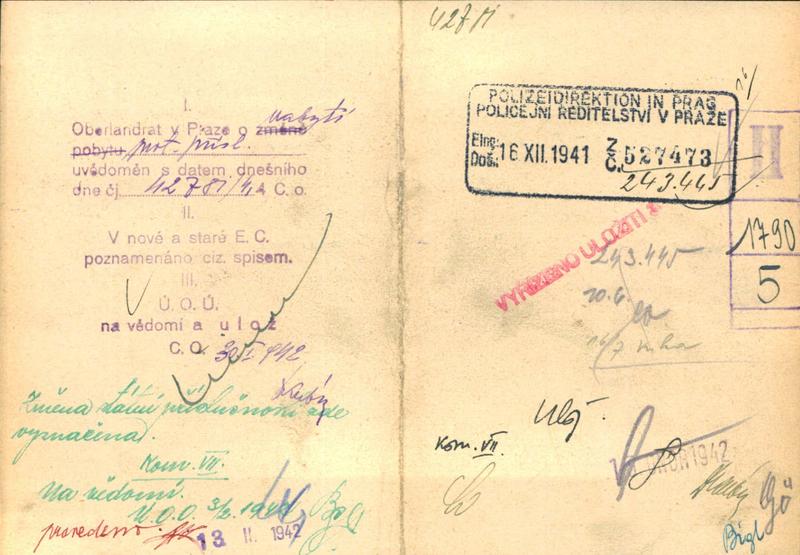 I.
Oberlandrat v Praze o změně nabytí
pobytu prot. přísl.
uvědoměn s datem dnešního
dne čj. C. o.
II.
V nové a staré E. C.
poznamenáno ciz. spisem.
III.
Ú. O. Ú.
na vědomí a ulož
C. O. 30/I 1942
Změna státní příslušnosti zde
vyznačena.
Kom. VII.
Na vědomí.
Ú.O.Ú. 3/2
provedeno
13 II. 1942
427
POLIZEIDIREKTION IN PRAG
POLICEJNÍ ŘEDITELSTVÍ V PRAZE
Eing.
Doš.: 16 XII. 1941 Z Č. 527473
243.445
II
1790
5
VYŘÍZENO ULOŽITI
243.445
Ulož.
Kom. VII.
1942
Gö
Bigl